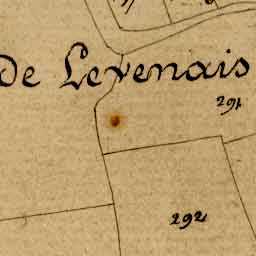 De Levenais
291
292